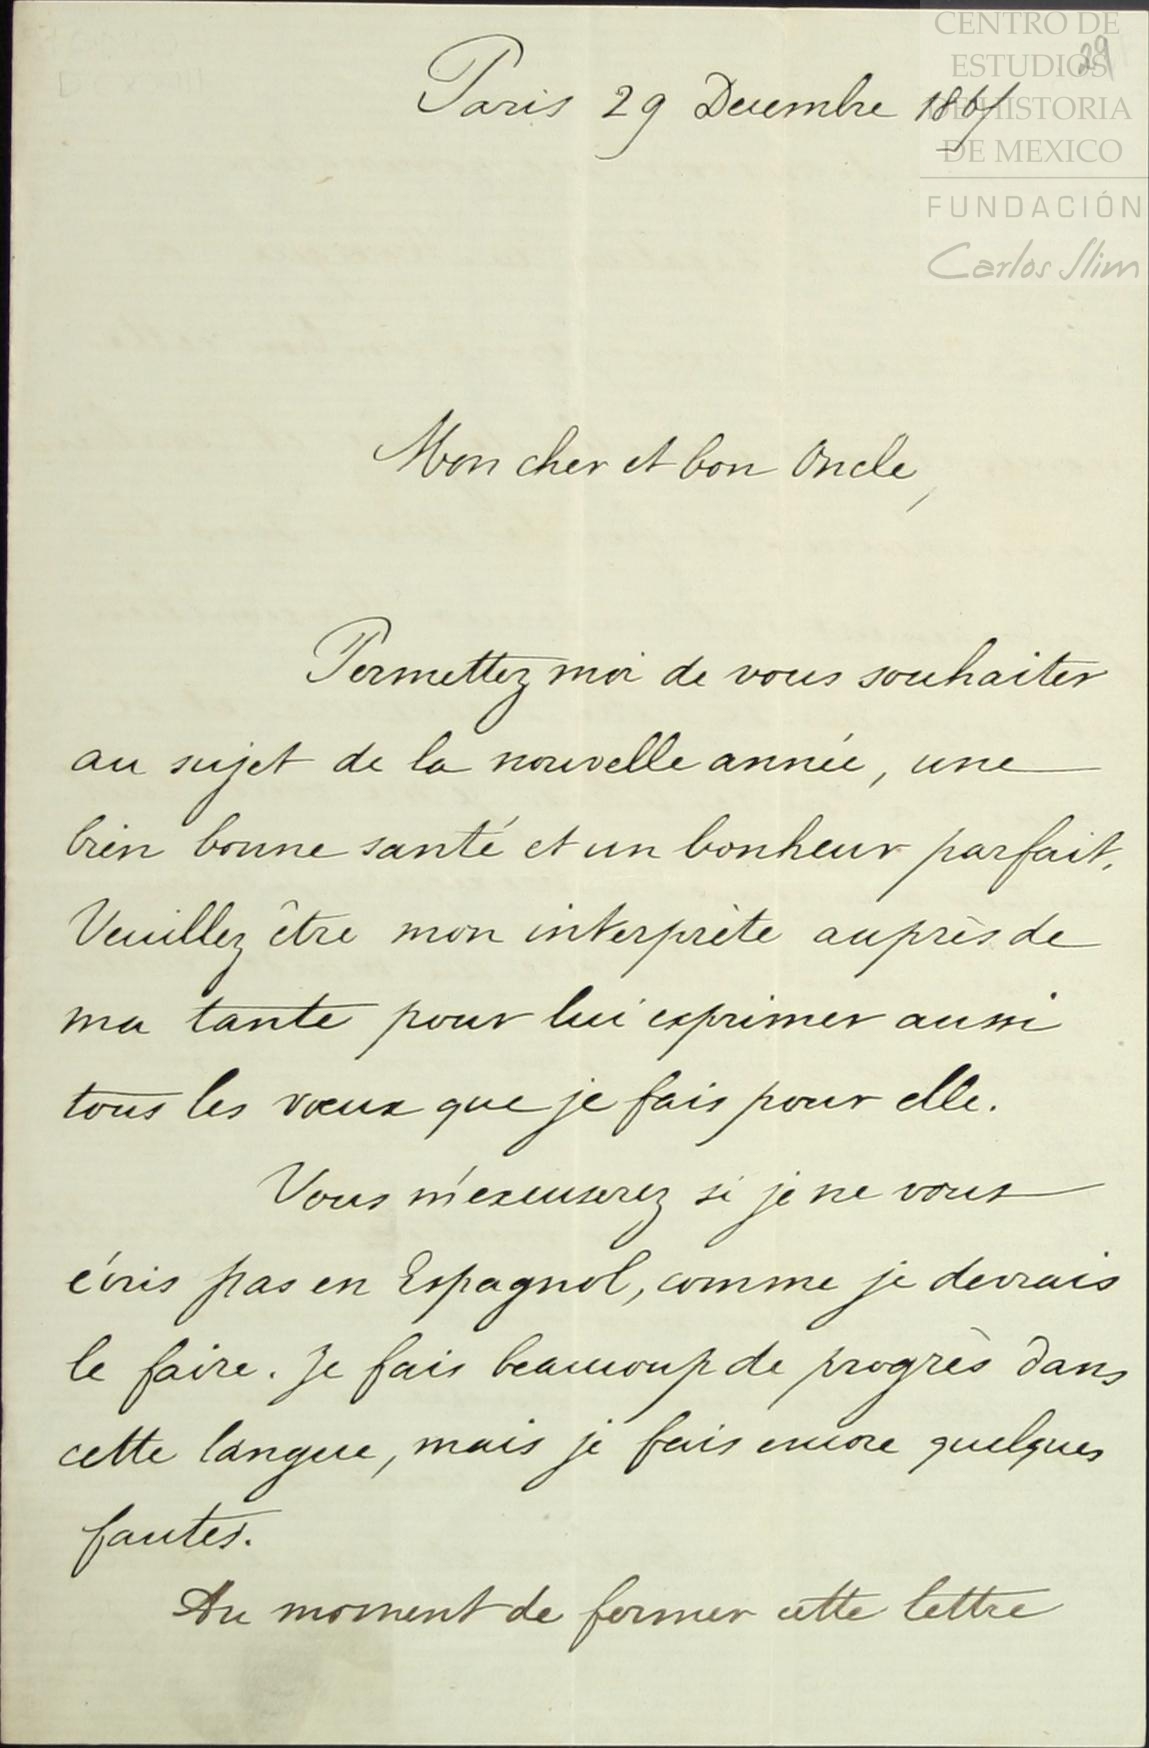 CENTRO DE
ESTUDIOS
DE HISTORIA
DE MEXICO
FUNDACIÓN
Carlos Slim
29
Paris 29 Decembre
Mon cher et bon Oncle,
Permettez moi de vous souhaiter
au sujet de la nouvelle année, une
bien bonne santé et un bonheur parfait.
Veuillez être mon interprète auprès de
ma tante pour lui exprimer aussi
tous les vœux que je fais pour elle.
Vous m'excuserez si je ne vous
écris pas en Espagnol, comme je devrais
le faire. Je fais beaucoup de progrès dans
cette langue, mais je fais encore quelques
fautes.
Au moment de fermer cette lettre